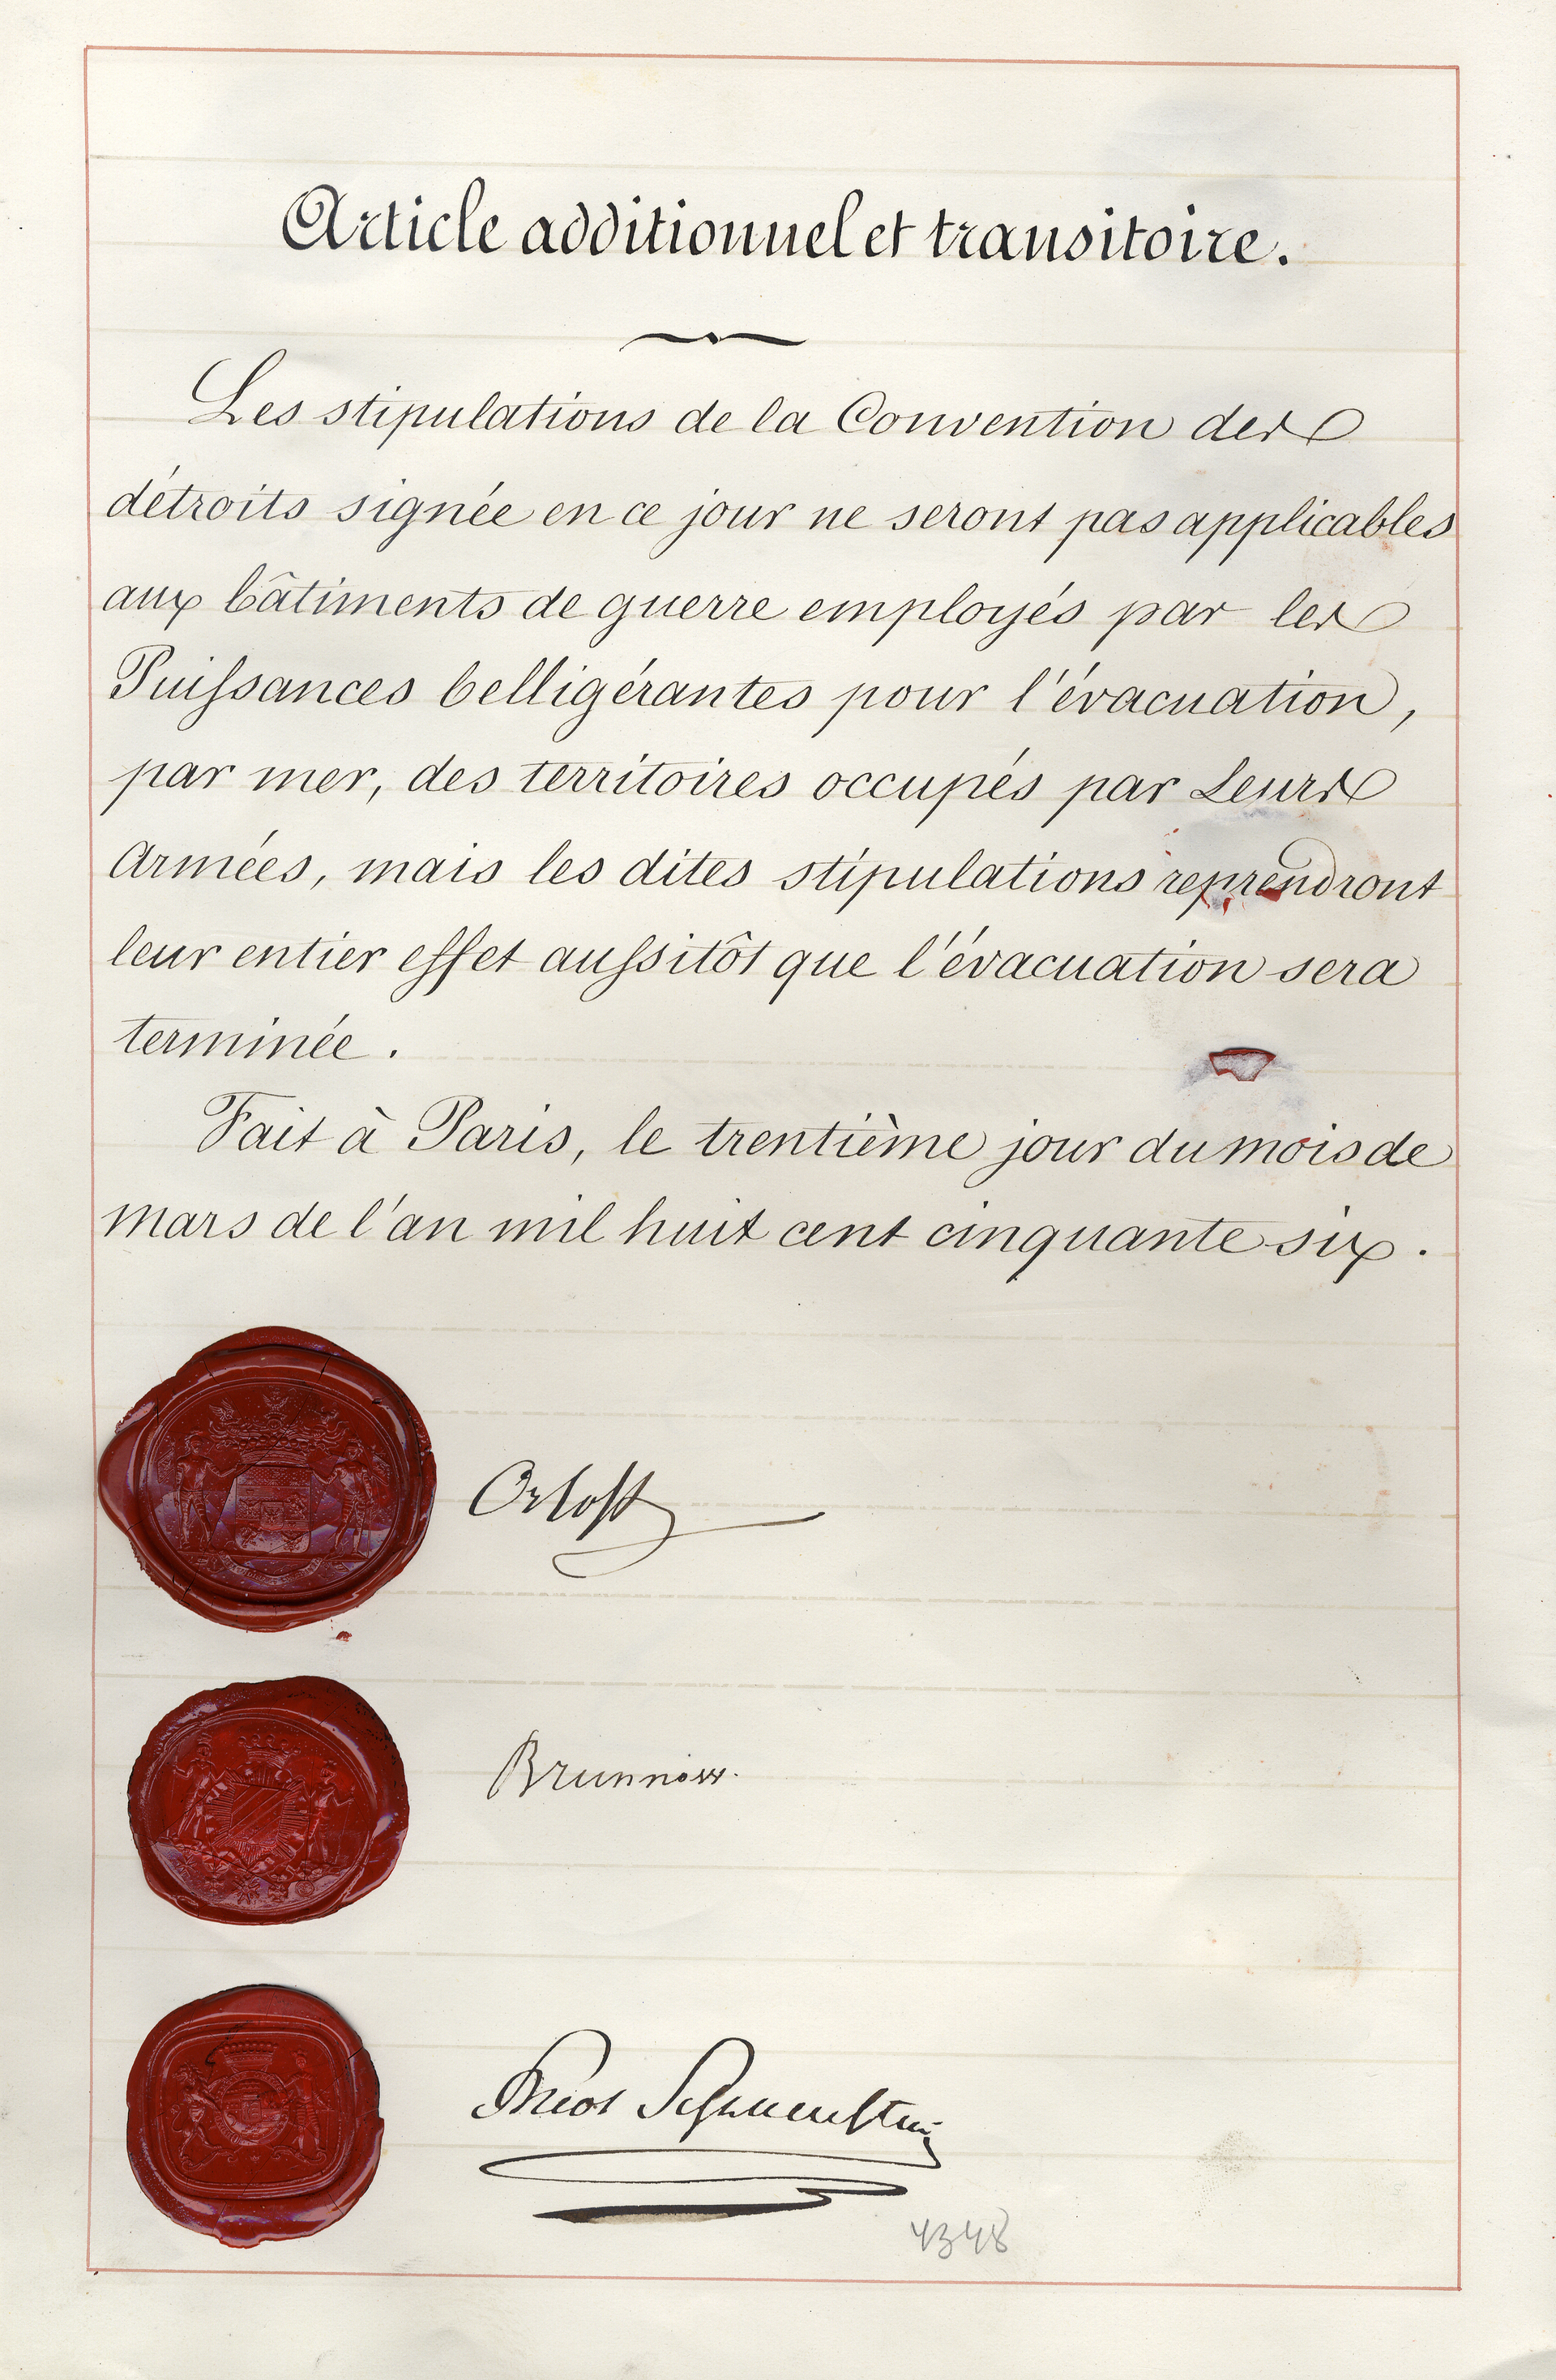 Article additionnel et transitoire.
Les stipulations de la Convention des
détroits signée en ce jour ne seront pas applicables
aux bâtiments de guerre employés par les
Puissances belligérantes pour l'évacuation,
par mer, des territoires occupés par Leurs
Armées, mais les dites stipulations reprendront
leur entier effet aussitôt que l'évacuation sera
terminée.
Fait à Paris, le trentième jour du mois de
mars de l'an mil huit cent cinquante six.
Orloff
Brunnow.
Buol Schauenstein
4348